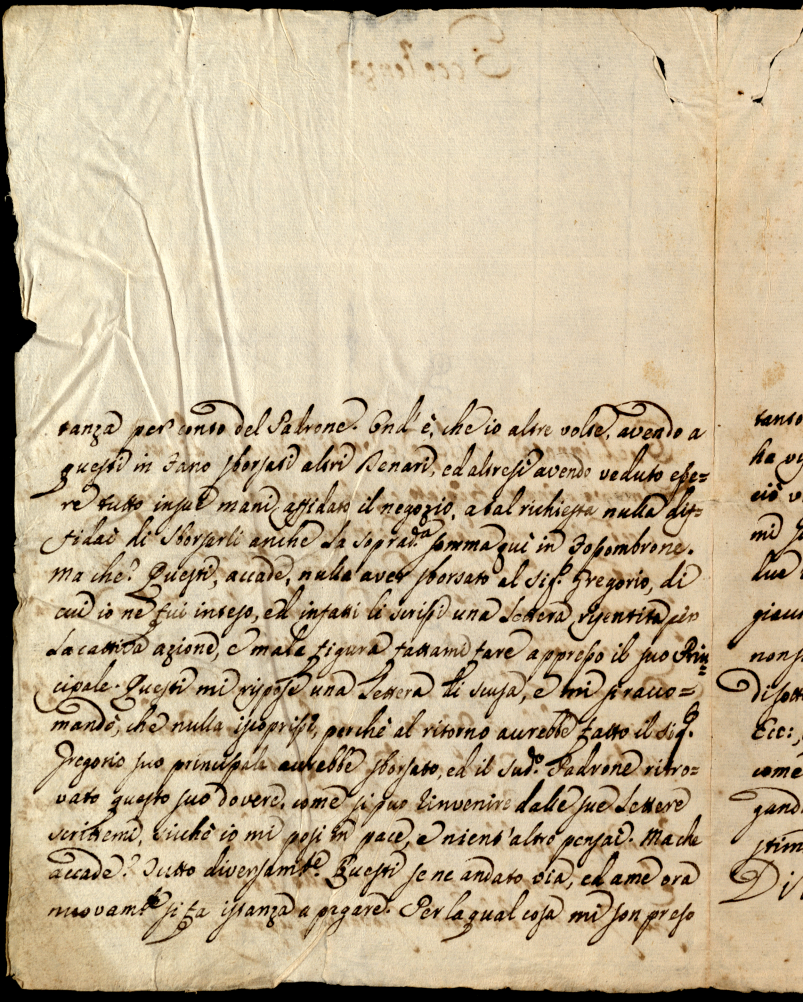 Eccelenza
tanza per conto del Padrone. Ond' è, che io altre volte, avendo a
questi in Fano sborsati altri Denari, ed altresi avendo veduto esse=
re tutto in sue mani affidato il negozio, a tal richiesta nulla dif=
fidai di sborsarli anche la soprad.ᵃ somma quì in Fossombrone.
Ma che? Questi, accade, nulla aver sborsato al Sig.ʳ Gregorio, di
cui io ne fui inteso, ed infatti li scrissi una Lettera risentita per
la cattiva azione, e mala figura fattami fare appresso il suo Prin=
cipale. Questi mi rispose una Lettera di scusa, e mi si racco=
mandò, che nulla iscoprissi, perchè al ritorno aurebbe fatto il Sig.ʳ
Gregorio suo principale aurebbe sborsato, ed il sud.º Padrone ritro=
vato questo suo dovere, come si può rinvenire dalle sue Lettere
scrittemi, sicchè io mi posi in pace, e nient'altro pensai. Ma che
accade? Tutto diversam.ᵗᵉ Questi se ne andato via, ed a me ora
nuovam.ᵗᵉ si fa istanza a pagare. Per la qual cosa mi son preso
tanto
ha
ciò
mi
due
non
disott
Ecc:
come
gand
stim